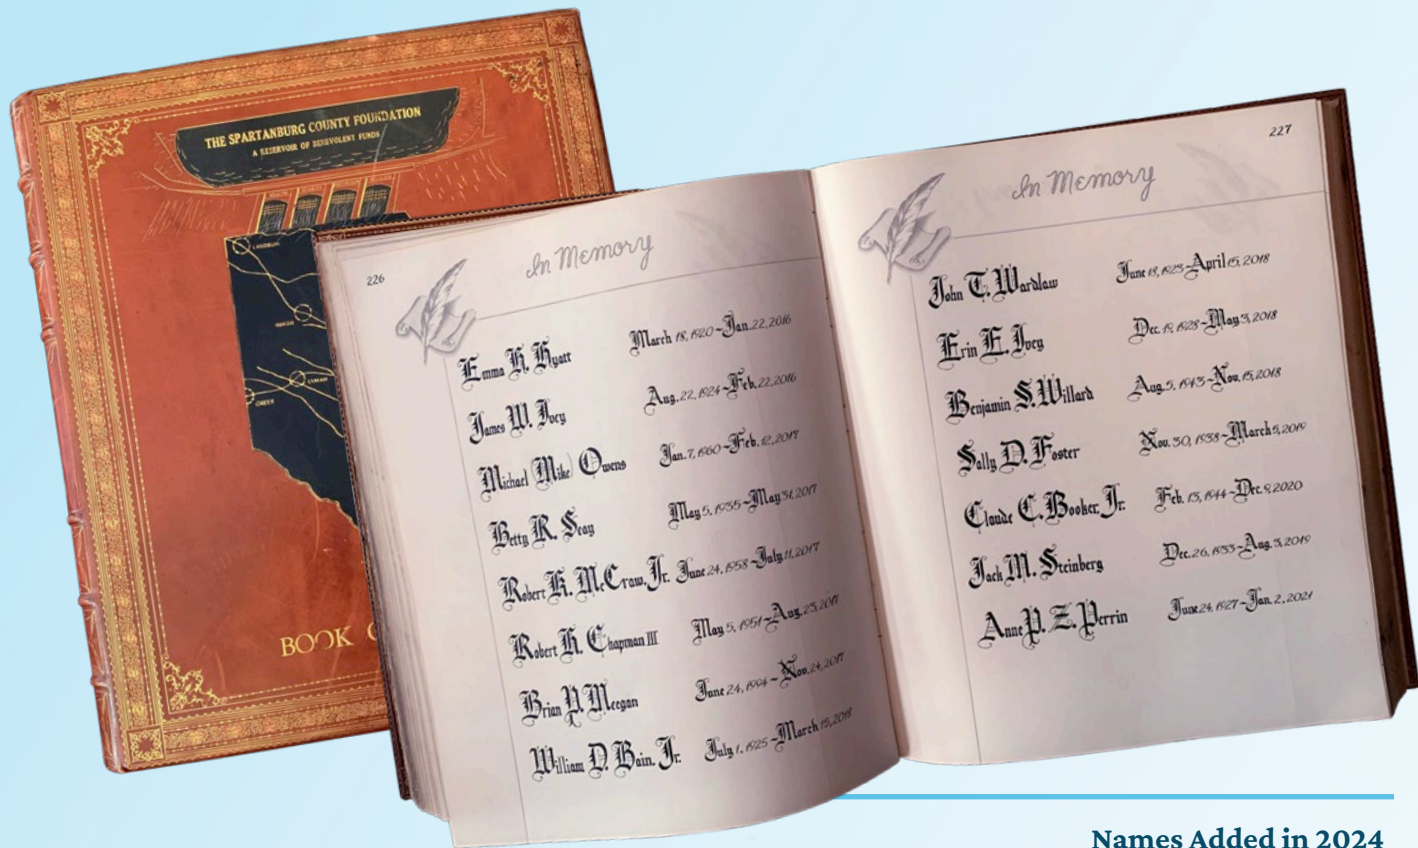 THE SPARTANBURG COUNTY FOUNDATION
A RESERVOIR OF BENEVOLENT FUNDS
LANDRUM
INMAN
LYMAN
GREER
BOOK
226
In Memory
Emma H. Hyatt March 18, 1920-Jan. 22, 2016
James W. Ivey Aug. 22, 1924-Feb. 22, 2016
Michael (Mike) Owens Jan. 7, 1960-Feb. 12, 2017
Betty R. Seay May 5, 1935-May 31, 2017
Robert H. McCraw, Jr. June 24, 1958-July 11, 2017
Robert H. Chapman III May 5, 1951-Aug. 23, 2017
Brian P. Meegan June 24, 1994-Nov. 24, 2017
William D. Bain, Jr. July 1, 1925-March 15, 2018
227
In Memory
John T. Wardlaw June 18, 1923-April 15, 2018
Erin E. Ivey Dec. 19, 1928-May 3, 2018
Benjamin S. Willard Aug. 5, 1943-Nov. 15, 2018
Sally D. Foster Nov. 30, 1938-March 5, 2019
Claude C. Booker, Jr. Feb. 13, 1944-Dec. 9, 2020
Jack M. Steinberg Dec. 26, 1933-Aug. 3, 2019
Anne P. Z. Perrin June 24, 1927-Jan. 2, 2021
Names Added in 2024